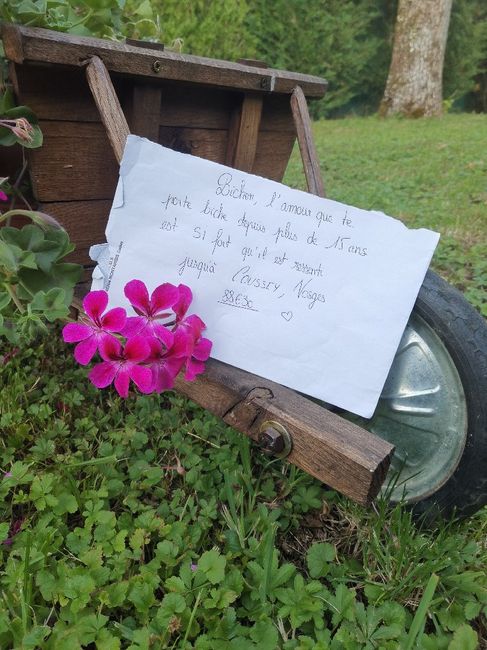 Bichon, l'amour que te
porte biche depuis plus de 15 ans
est si fort qu'il est ressenti
jusqu'à COUSSEY, Vosges
88630